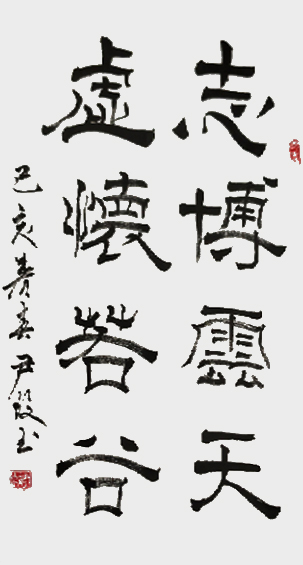 志博雲天
虛懷若谷
己亥青春尹段玉